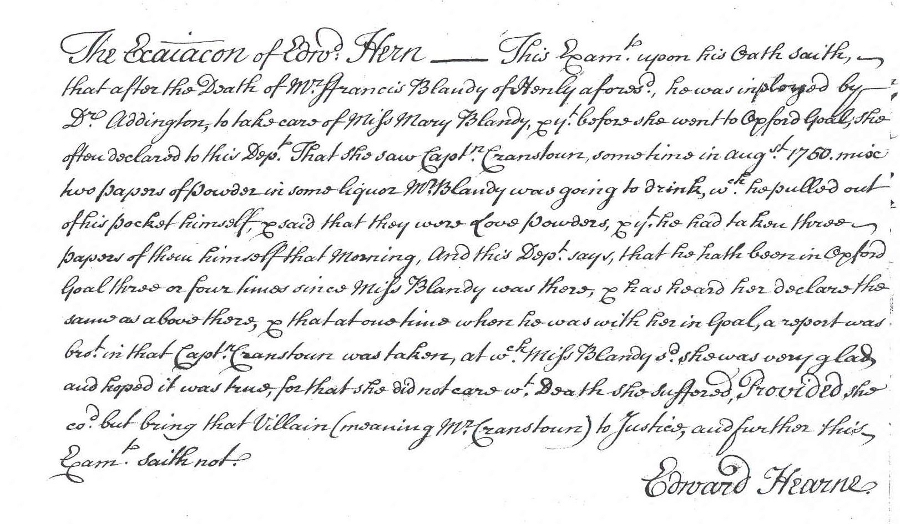 The Exaiãcon of Edwd. Hern —— This Examt. upon his Oath saith,
that after the Death of Mr. ffrancis Blandy of Henly aforesd., he was inployed by
Dr. Addington, to take care of Miss Mary Blandy, & yt. before she went to Oxford Goal, she
often declared to this Dept. That she saw Captn. Cranstoun, some time in Augst. 1750. mix
two papers of powder in some liquor Mr. Blandy was going to drink, wch. he pulled out
of his pocket himself, & said that they were Love powders, & yt. he had taken three
papers of them himself that Morning, And this Dept. says, that he hath been in Oxford
Goal three or four times since Miss Blandy was there, & has heard her declare the
same as above there, & that at one time when he was with her in Goal, a report was
brot. in that Captn. Cranstoun was taken, at wch. Miss Blandy sd. she was very glad
and hoped it was true, for that she did not care wt. Death she suffered, Provided she
cod. but bring that Villain (meaning Mr. Cranstoun) to Justice, and further this
Examt. saith not.
Edward Hearne.